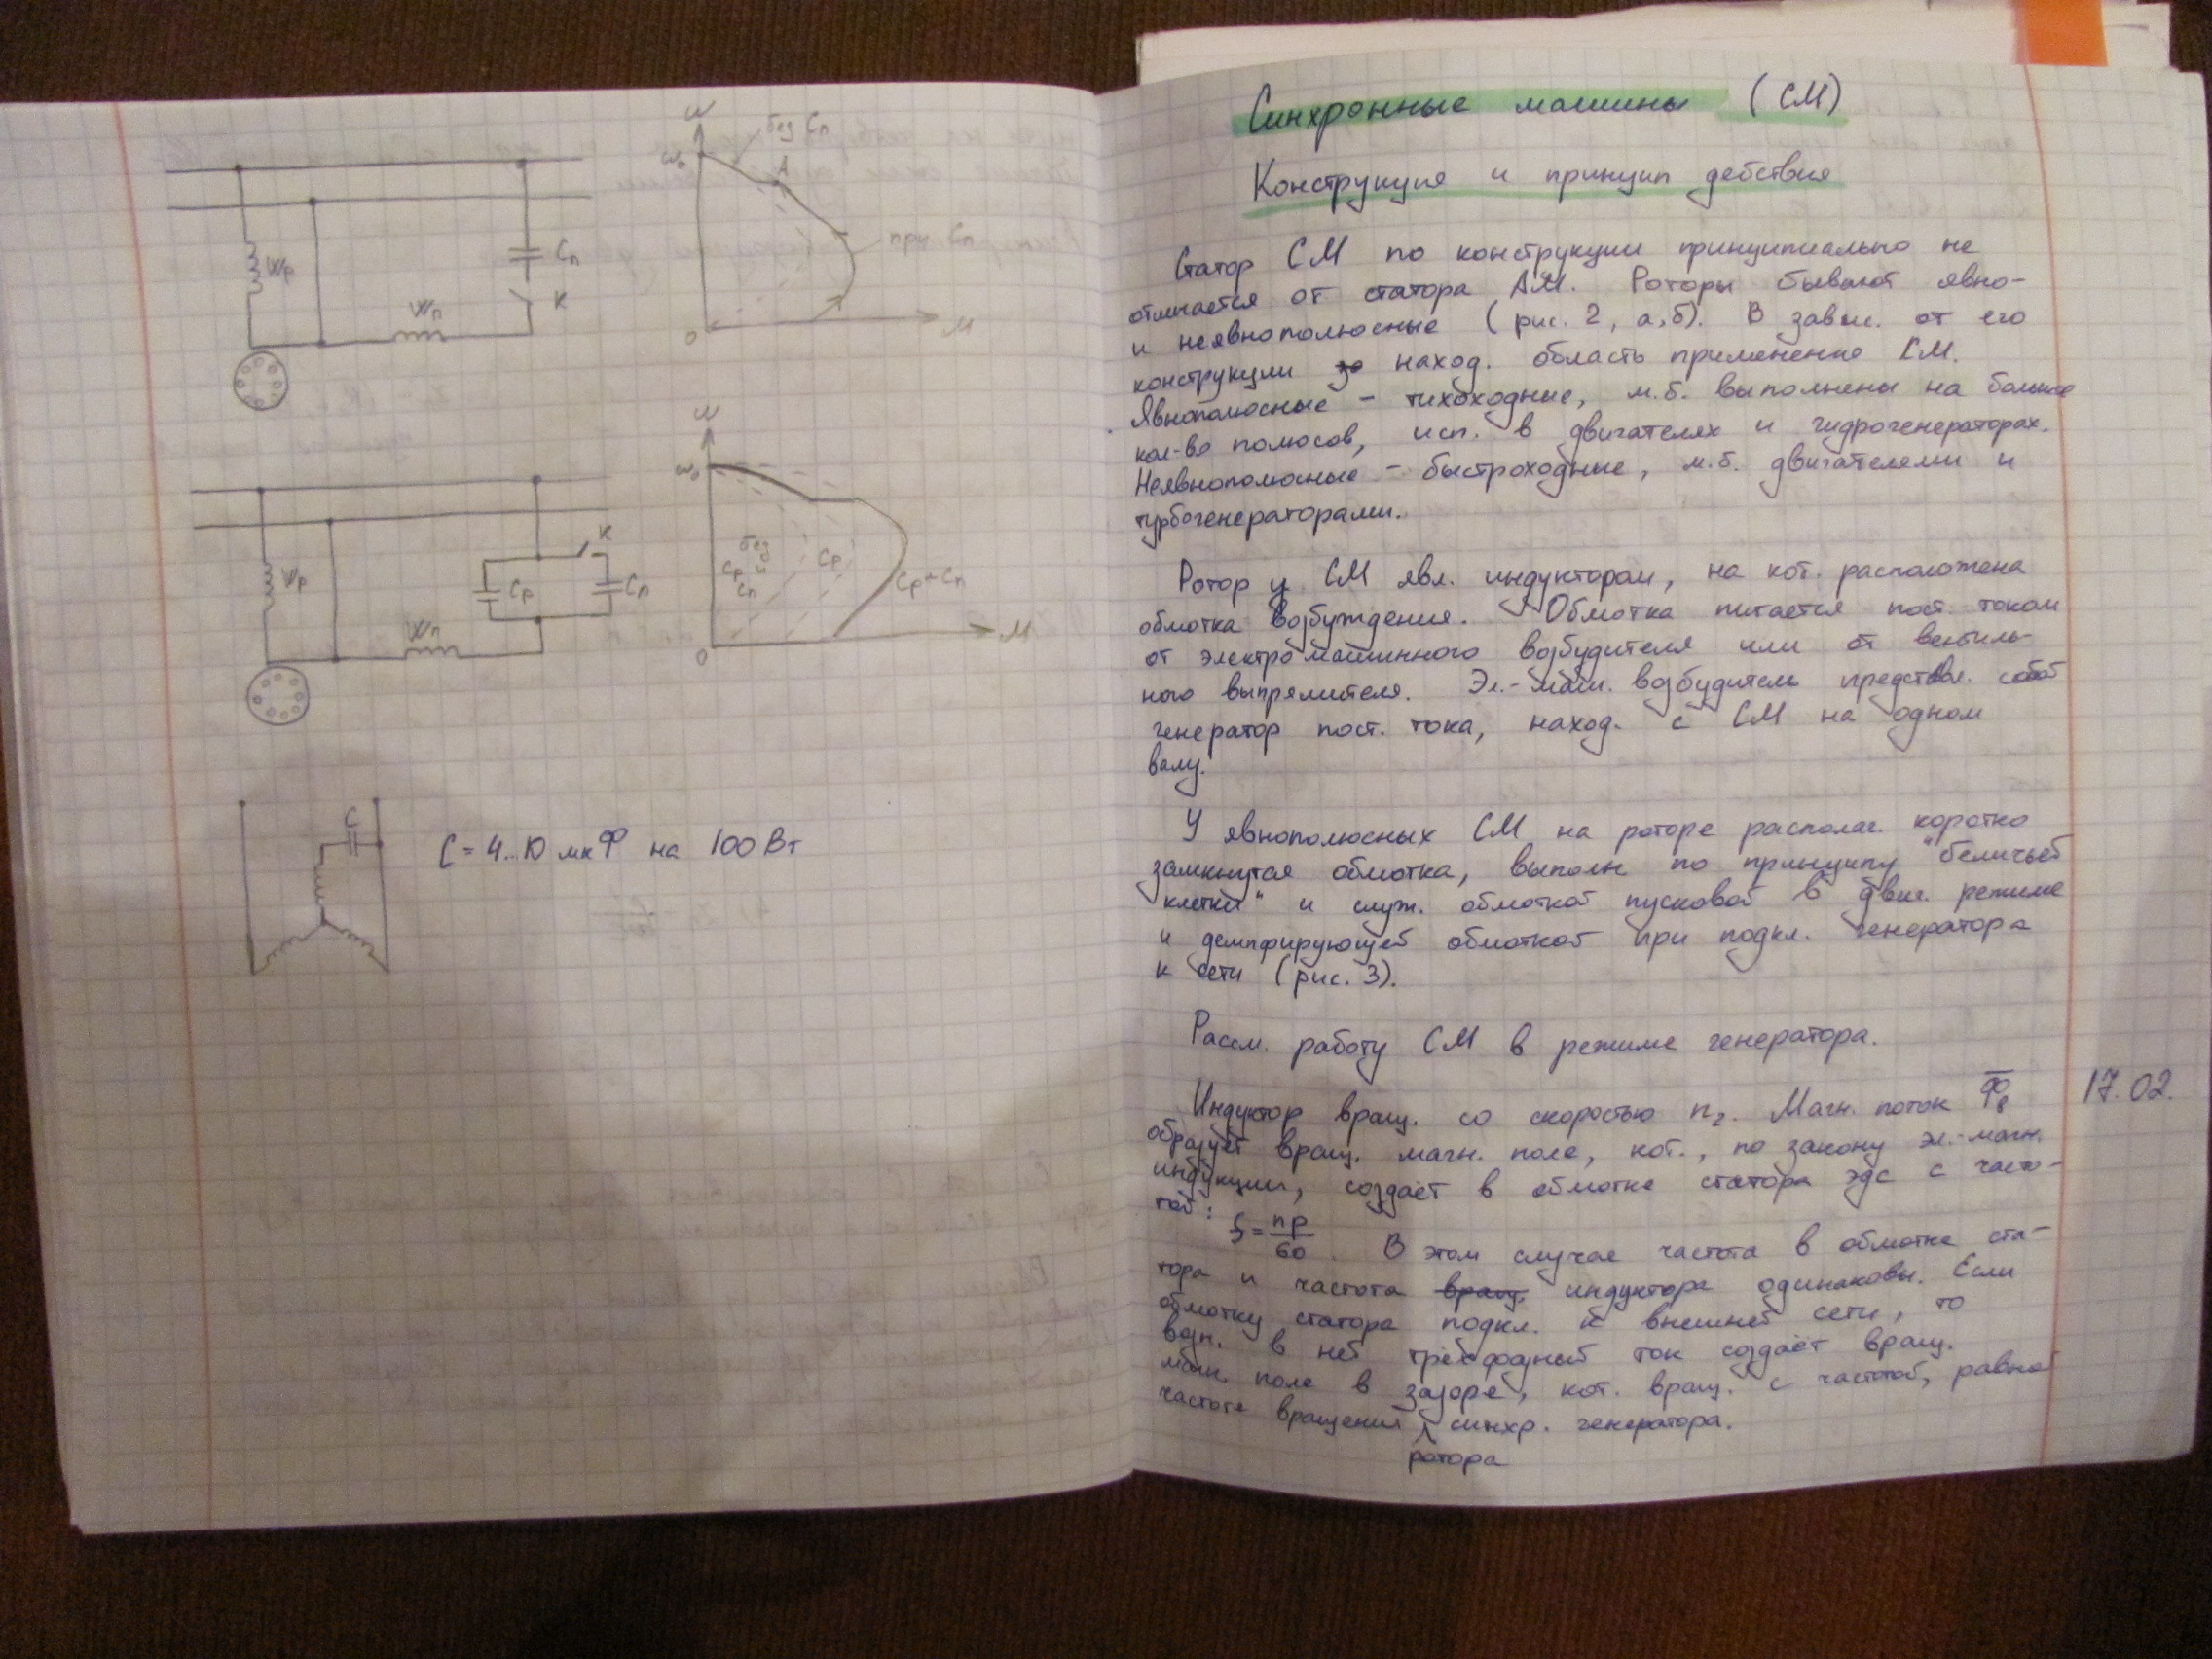 W
без Cп
W₀
A
при Cп
Wр
Cп
K
Wп
0
M
W
W₀
K
Wр
Cр
Cп
Wп
без
Cр и
Cп
Cр
Cр+Cп
0
M
C
C = 4..10 мкФ на 100 Вт
Синхронные машины (СМ)
Конструкция и принцип действия
Статор СМ по конструкции принципиально не
отличается от статора АМ. Роторы бывают явно-
и неявнополюсные (рис. 2, а,б). В завис. от его
конструкции наход. область применение СМ.
Явнополюсные - тихоходные, м.б. выполнены на большее
кол-во полюсов, исп. в двигателях и гидрогенераторах.
Неявнополюсные - быстроходные, м.б. двигателями и
турбогенераторами.
Ротор у СМ явл. индуктором, на кот. расположена
обмотка возбуждения. Обмотка питается пост. током
от электромашинного возбудителя или от вентиль-
ного выпрямителя. Эл.-маш. возбудитель представл. собой
генератор пост. тока, наход. с СМ на одном
валу.
У явнополюсных СМ на роторе располаг. коротко
замкнутая обмотка, выполн по принципу "беличьей
клетки" и служ. обмоткой пусковой в двиг. режиме
и демпфирующей обмоткой при подкл. генератора
к сети (рис. 3).
Рассм. работу СМ в режиме генератора.
Индуктор вращ. со скоростью n₂. Магн. поток Ф̅в
17.02.
образует вращ. магн. поле, кот., по закону эл.-магн.
индукции, создаёт в обмотке статора эдс с часто-
той:
f = np/60. В этом случае частота в обмотке ста-
тора и частота вращ. индуктора одинаковы. Если
обмотку статора подкл. к внешней сети, то
возн. в ней трёхфазный ток создаёт вращ.
магн. поле в зазоре, кот. вращ. с частотой, равной
частоте вращения синхр. генератора.
ротора